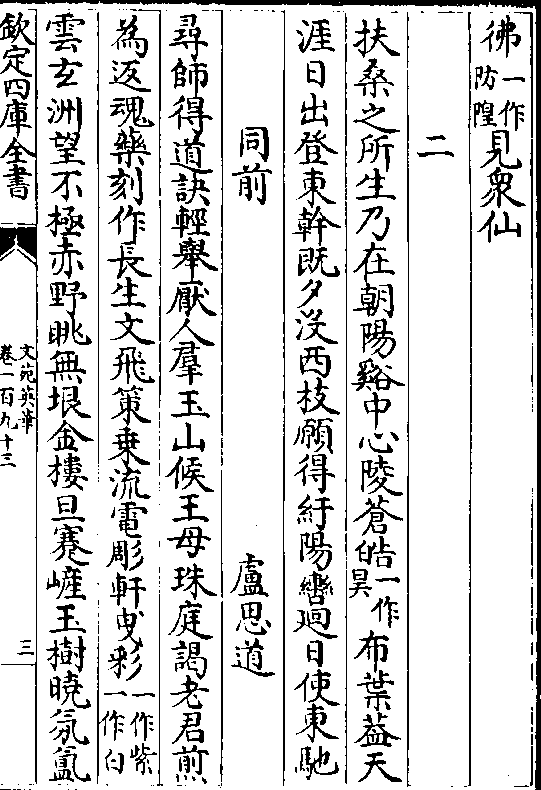 彿一作防隍見衆仙
二
扶桑之所生乃在朝陽谿中心陵蒼皓一作昊布葉葢天
涯日出登東幹既夕没西枝願得紆陽轡廻日使東馳
同前 盧思道
尋師得道訣輕舉厭人羣玉山候王母珠庭謁老君煎
為返魂藥刻作長生文飛策乗流電彫軒曵彩一作紫一作白
雲玄洲望不極赤野眺無垠金樓旦蹇嵼玉樹曉氛氲
欽定四庫全書
文苑英華
卷一百九十三
三